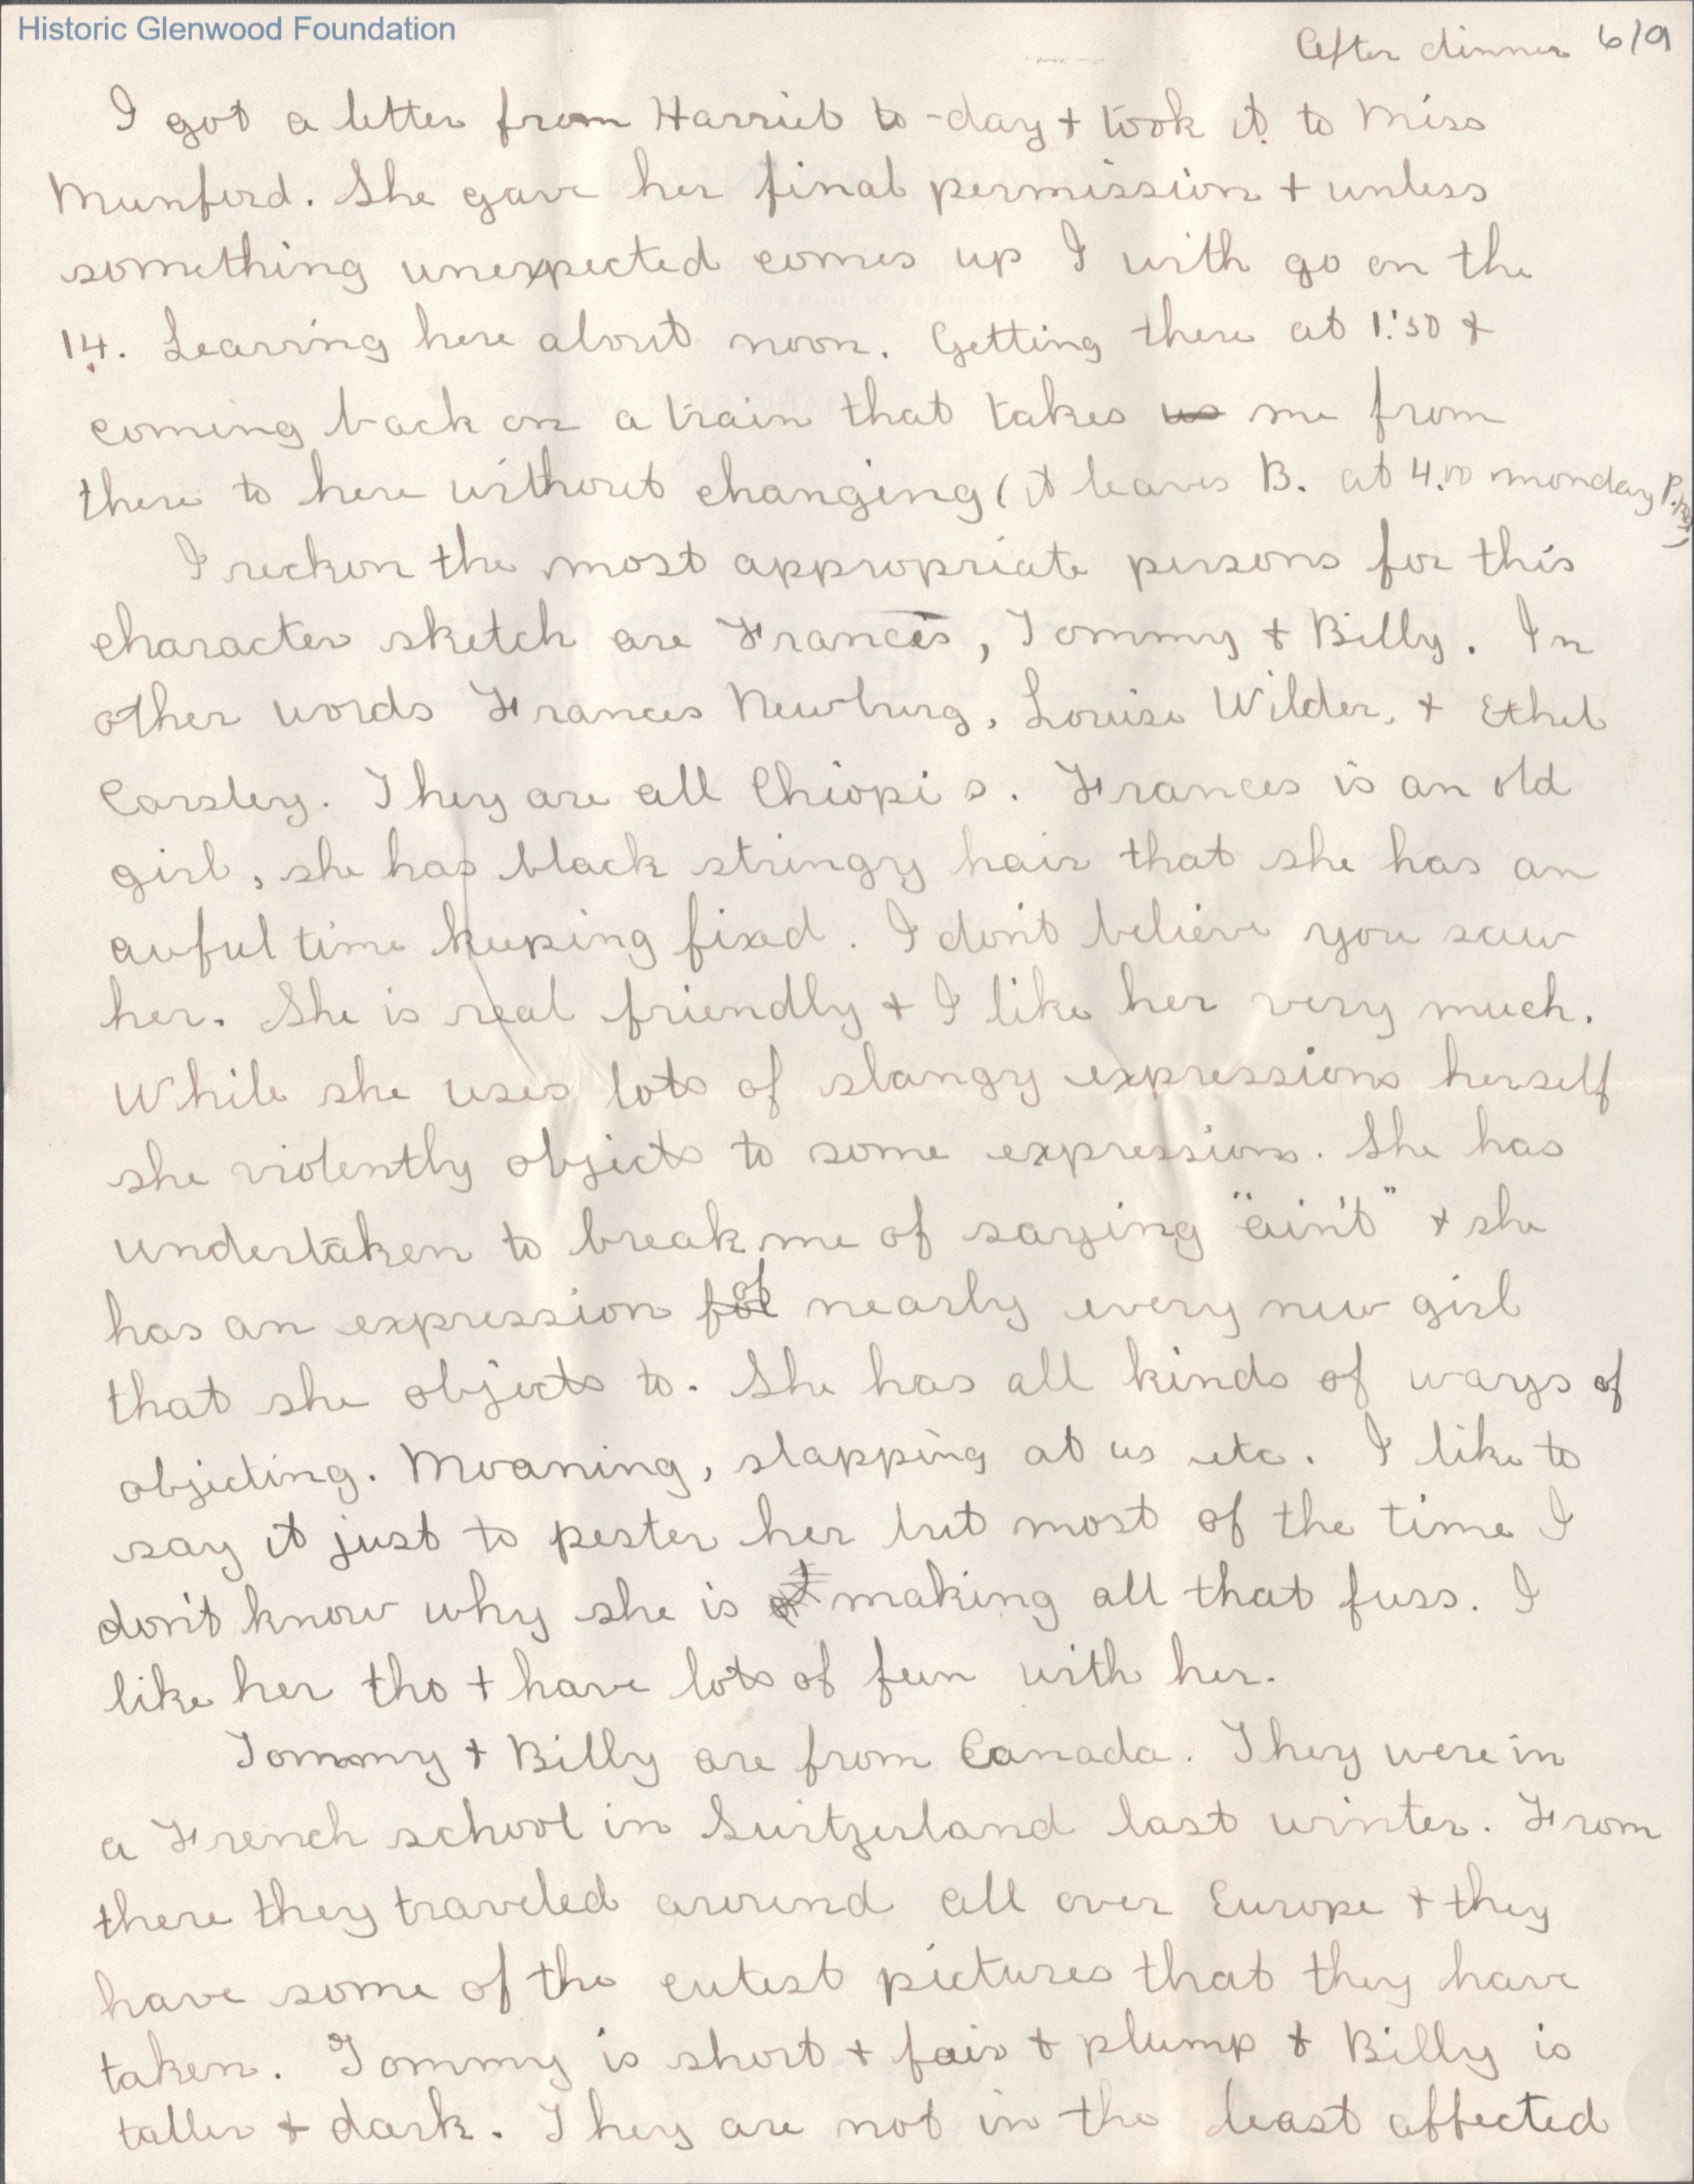 Historic Glenwood Foundation
After dinner 6/9
I got a letter from Harriet to-day + took it to Miss
Munford. She gave her final permission + unless
something unexpected comes up I with go on the
14. Leaving here about noon. Getting there at 1:50 +
coming back on a train that takes us me from
there to here without changing (it leaves B. at 4.00 monday P.M.)
I reckon the most appropriate persons for this
character sketch are Frances, Tommy + Billy. In
other words Frances Newburg, Louise Wilder, + Ethel
Carsley. They are all Chiopi s. Frances is an old
girl, she has black stringy hair that she has an
awful time keeping fixed. I don't believe you saw
her. She is real friendly + I like her very much.
While she uses lots of slangy expressions herself
she violently objects to some expressions. She has
undertaken to break me of saying "ain't" + she
has an expression for of nearly every new girl
that she objects to. She has all kinds of ways of
objecting. Moaning, slapping at us etc. I like to
say it just to pester her but most of the time I
don't know why she is making all that fuss. I
like her tho + have lots of fun with her.
Tommy + Billy are from Canada. They were in
a French school in Switzerland last winter. From
there they traveled around all over Europe + they
have some of the cutest pictures that they have
taken. Tommy is short + fair + plump + Billy is
taller + dark. They are not in the least affected